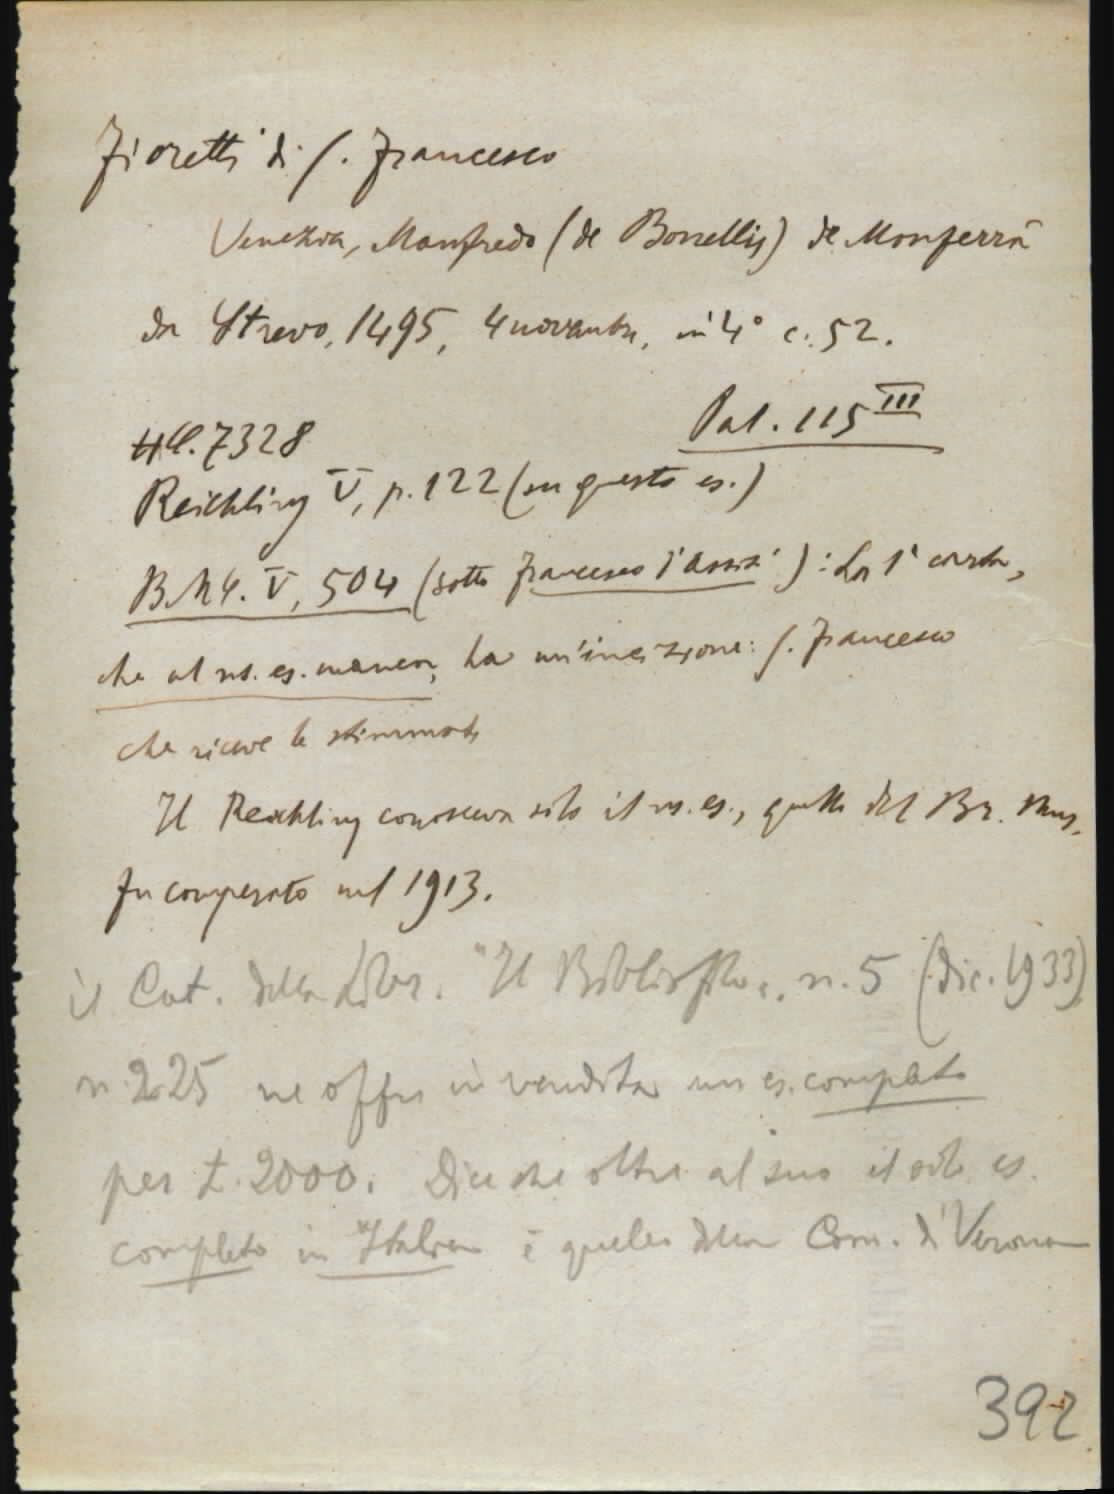 Fioretti di S. Francesco
Venezia, Manfredo (de Bonellis) de Monferrà
da Strevo, 1495, 4 novembre, in 4° c. 52.
Pal. 115 III
HC. 7328
Reichling V, p. 122 (su questo es.)
B.M.C. V, 504 (sotto Francesco d'Assisi): La 1ª carta,
che al ns. es. manca, ha un'incisione: S. Francesco
che riceve le stimmate
Il Reichling conosceva solo il ns. es., quello del Br. Mus.
fu comperato nel 1913.
il Cat. della Libr. "Il Bibliofilo", n. 5 (dic. 1933)
n. 225 ne offre in vendita un es. completo
per £. 2000. Dice che oltre al suo il solo es.
completo in Italia è quello della Com. di Verona
392